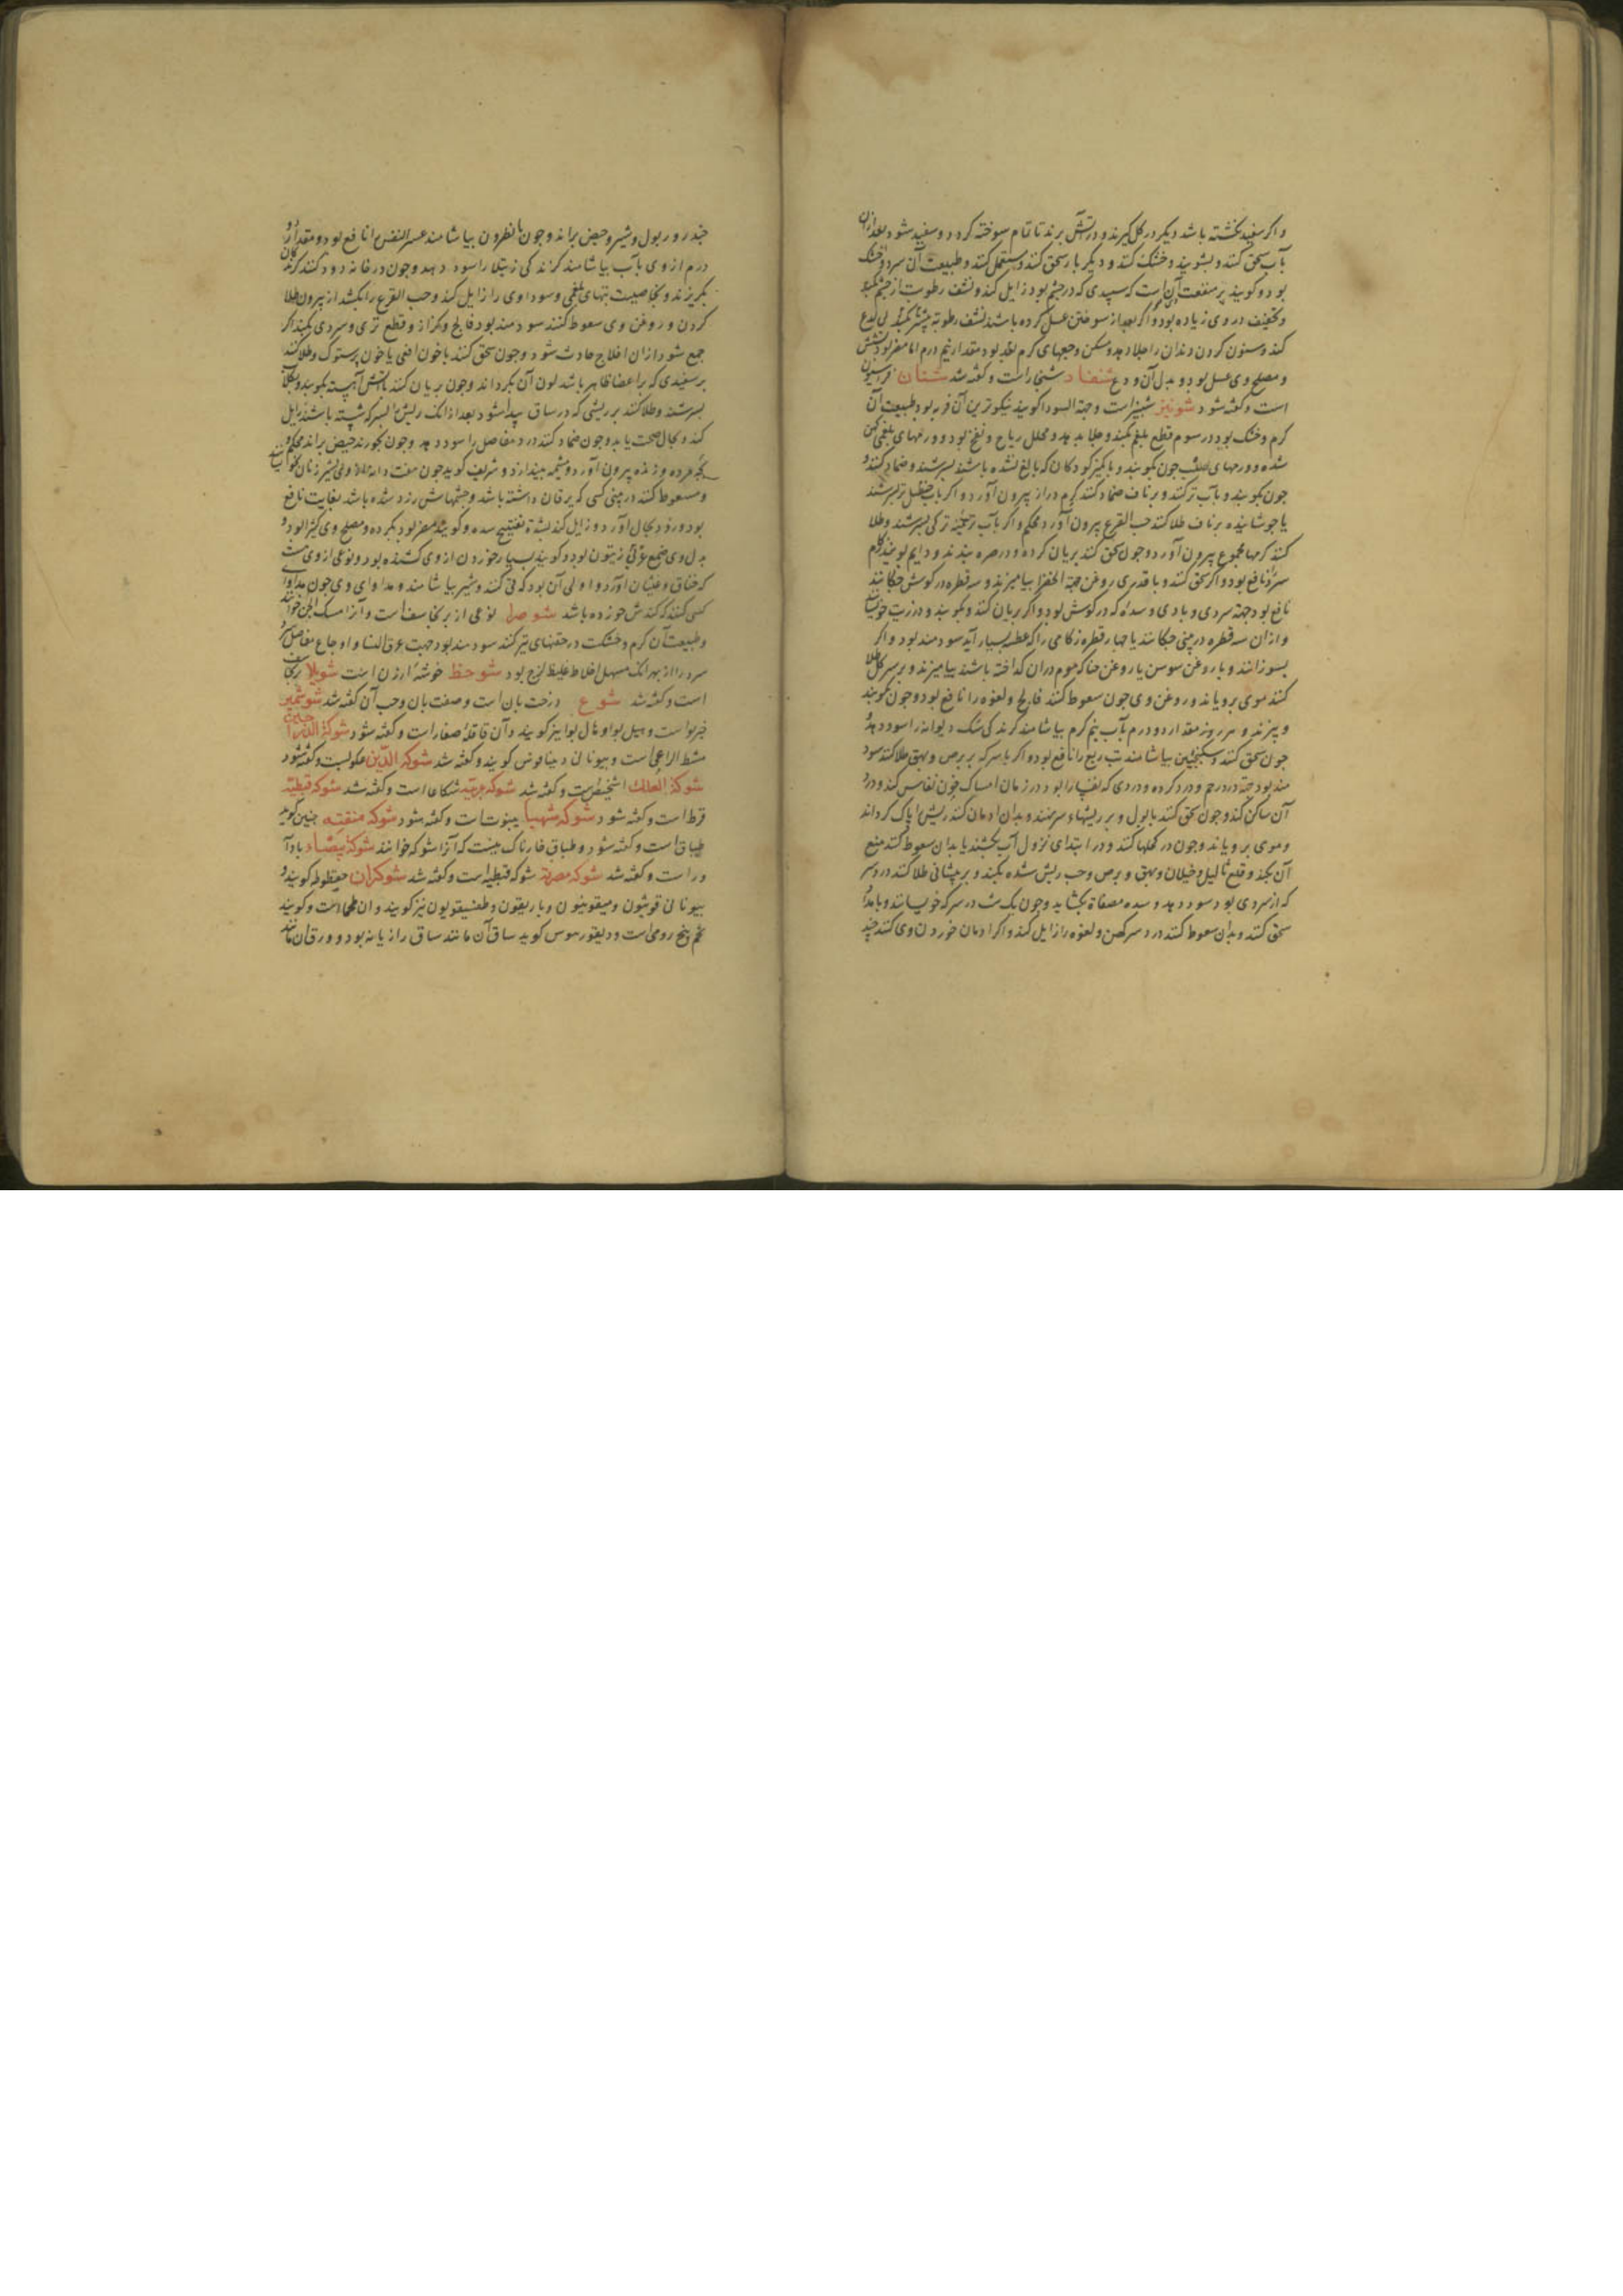 و اگر سفید نگشته باشد دیگر در گل گیرند و در آتش برند تا تمام سوخته گردد و سفید شود بعد ازان
بآب سحق کنند و بشویند و خشک کنند و دیگر بار سحق کنند و مستعمل کنند و طبیعت آن سرد و خشک
بود و گویند پر منفعت آن است که سپیدی که در چشم بود زایل کند و نشف رطوبت از چشم بکند
و تخفیف در وی زیاده بود و اگر بعد از سوختن غسل کرده باشند نشف رطوبة بیشتر کند بی لذع
کند و سنون کردن دندان را جلا دهد و مسکن وجعهای گرم بود مقدار نیم درم اما مضر بود
و مصلح وی عسل بود و بدل آن ودع شنغاد شنجار است و گفته شد شنان فراسیون
است و گفته شود شونیز شبنیز است و حبة السودا گویند نیکوترین آن فربه بود طبیعت آن
گرم و خشک بود در سوم قطع بلغم بکند و جلا بدهد و محلل ریاح و نفخ بود و ورمهای بلغمی کهن
شده و ورمهای صلب چون بکوبند و با کمیز کودکان که بالغ نشده باشند بسرشند و ضماد کنند و
چون بکوبند و بآب تر کنند و بر ناف ضماد کنند کرم دراز بیرون آورد و اگر بآب حنظل تر بسرشند
یا جوشانیده بر ناف طلا کنند حب القرع بیرون آورد محکم و اگر بآب ترکی بسرشند و طلا
کنند کرمها مجموع بیرون آورد و چون سحق کنند بریان کرده و در صره بندند و دایم بویند زکام
سرد را نافع بود و اگر سحق کنند و با قدری روغن حبة الخضرا بیامیزند و سه قطره در گوش چکانند
نافع بود جهة سردی و بادی و سده که در گوش بود و اگر بریان کنند و بکوبند و در زیت خیسانند
و ازان سه قطره در بینی چکانند یا چهار قطره زکامی را که عطسه بسیار آید سودمند بود و اگر
بسوزانند و با روغن سوسن یا روغن حنا که موم دران گداخته باشند بیامیزند و بر سر کل طلا
کنند موی برویاند و روغن وی چون سعوط کنند فالج و لقوه را نافع بود و چون بکوبند
و بپزند و هر روز مقدار دو درم بآب نیم گرم بیاشامند گزندگی سگ دیوانه را سود دهد و
چون سحق کنند و بسکنجبین بیاشامند تب ربع را نافع بود و اگر با سرکه بر برص و بهق طلا کنند سود
مند بود جهة درد رحم و درد گرده و دردی که نفسا را بود در زمان امساک خون نفاس کند و درد
آن ساکن کند و چون سحق کنند با بول و بر ریشهاء سر نهند و بدان ادمان کنند ریش را پاک گرداند
و موی برویاند و چون در کحلها کنند و در ابتدای نزول آب بکشند یا بدان سعوط کنند منع
آن بکند و قلع ثالیل و خیلان و بهق و برص و جرب ریش شده بکند و بر پیشانی طلا کنند درد سر
که از سردی بود سود دهد و سده مصفاة بگشاید و چون یک شب در سرکه خیسانند و بامداد
سحق کنند و بدان سعوط کنند درد سر کهن و لقوه را زایل کند و اگر ادمان خوردن وی کنند چند
چند روز بول و شیر و حیض براند و چون با نطرون بیاشامند عسر النفس را نافع بود و مقدار دو
درم از وی بآب بیاشامند گزندگی رتیلا را سود دهد و چون در خانه دود کنند گزندگان
بگریزند و بخاصیت تبهای بلغمی و سوداوی را زایل کند و حب القرع را بکشد از بیرون طلا
کردن و روغن وی سعوط کنند سودمند بود فالج و کزاز و قطع تری و سردی بکند اگر
جمع شود ازان افلاج حادث شود و چون سحق کنند با خون افعی یا خون پرستوک و طلا کنند
بر سفیدی که بر اعضا ظاهر باشد لون آن بگرداند و چون بریان کنند بآتش آهسته بکوبند و بگلاب
بسرشند و طلا کنند بر ریشی که در ساق پیدا شود بعد از انک ریش را بسرکه شسته باشند زایل
کند و بحال صحت باید و چون ضماد کنند درد مفاصل را سود دهد و چون بخورند حیض براند محکم و
بچه مرده و زنده بیرون آورد و مشیمه بیندازد و شریف گوید چون هفت دانه بشیر زنان
و سعوط کنند در بینی کسی که یرقان داشته باشد و چشمهاش زرد شده باشد بغایت نافع
بود و زود بحال آورد و زایل کند بشدة تفتیح سده و گویند مضر بود بگرده و مصلح وی کثیرا بود و
بدل وی صمغ عرقی زیتون بود و گویند بسیار خوردن از وی کشنده بود و نوعی از وی هست
که خناق و غثیان آورد و اولی آن بود که قی کنند و شیر بیاشامند و مداوای وی چون مداوا
کسی کنند که کندش خورده باشد شوصرا نوعی از برنجاسف است و آنرا مسک الجن خوانند
و طبیعت آن گرم و خشکست در حقنهای تیز کنند سودمند بود جهت عرق النسا و اوجاع مفاصل
سرد را از بهر انک مسهل اخلاط غلیظ لزج بود شوحظ خوشه ارزن است شویلا برنجاسف
است و گفته شد شوع درخت بان است و صفت بان و حب آن گفته شد شوشمیر
خیربوا است و هیل بوا و هال بوا نیز گویند و آن قاقله صغار است و گفته شود شوکة الدراجین
مشط الراعی است و بیونانی دینافوس گویند و گفته شد شوکه الدین عکوبست و گفته شود
شوکة العلک اشخیص است و گفته شد شوکه عربیه شکاعا است و گفته شد شوکه قبطیه
قرظ است و گفته شود شوکه شهبا ینبوت است و گفته شود شوکه منتنه چنین گویند
طباق است و گفته شود و طباق خارناک نیست که آنرا شوکه خوانند شوکه بیضاء بادآ
ورد است و گفته شد شوکه مصریه شوکه قبطیه است و گفته شد شوکران گویند و
بیونانی قونیون و گویند
تخم بنج رومی است و دیسقوریدوس گوید ساق آن مانند ساق رازیانه بود و ورق آن مانند